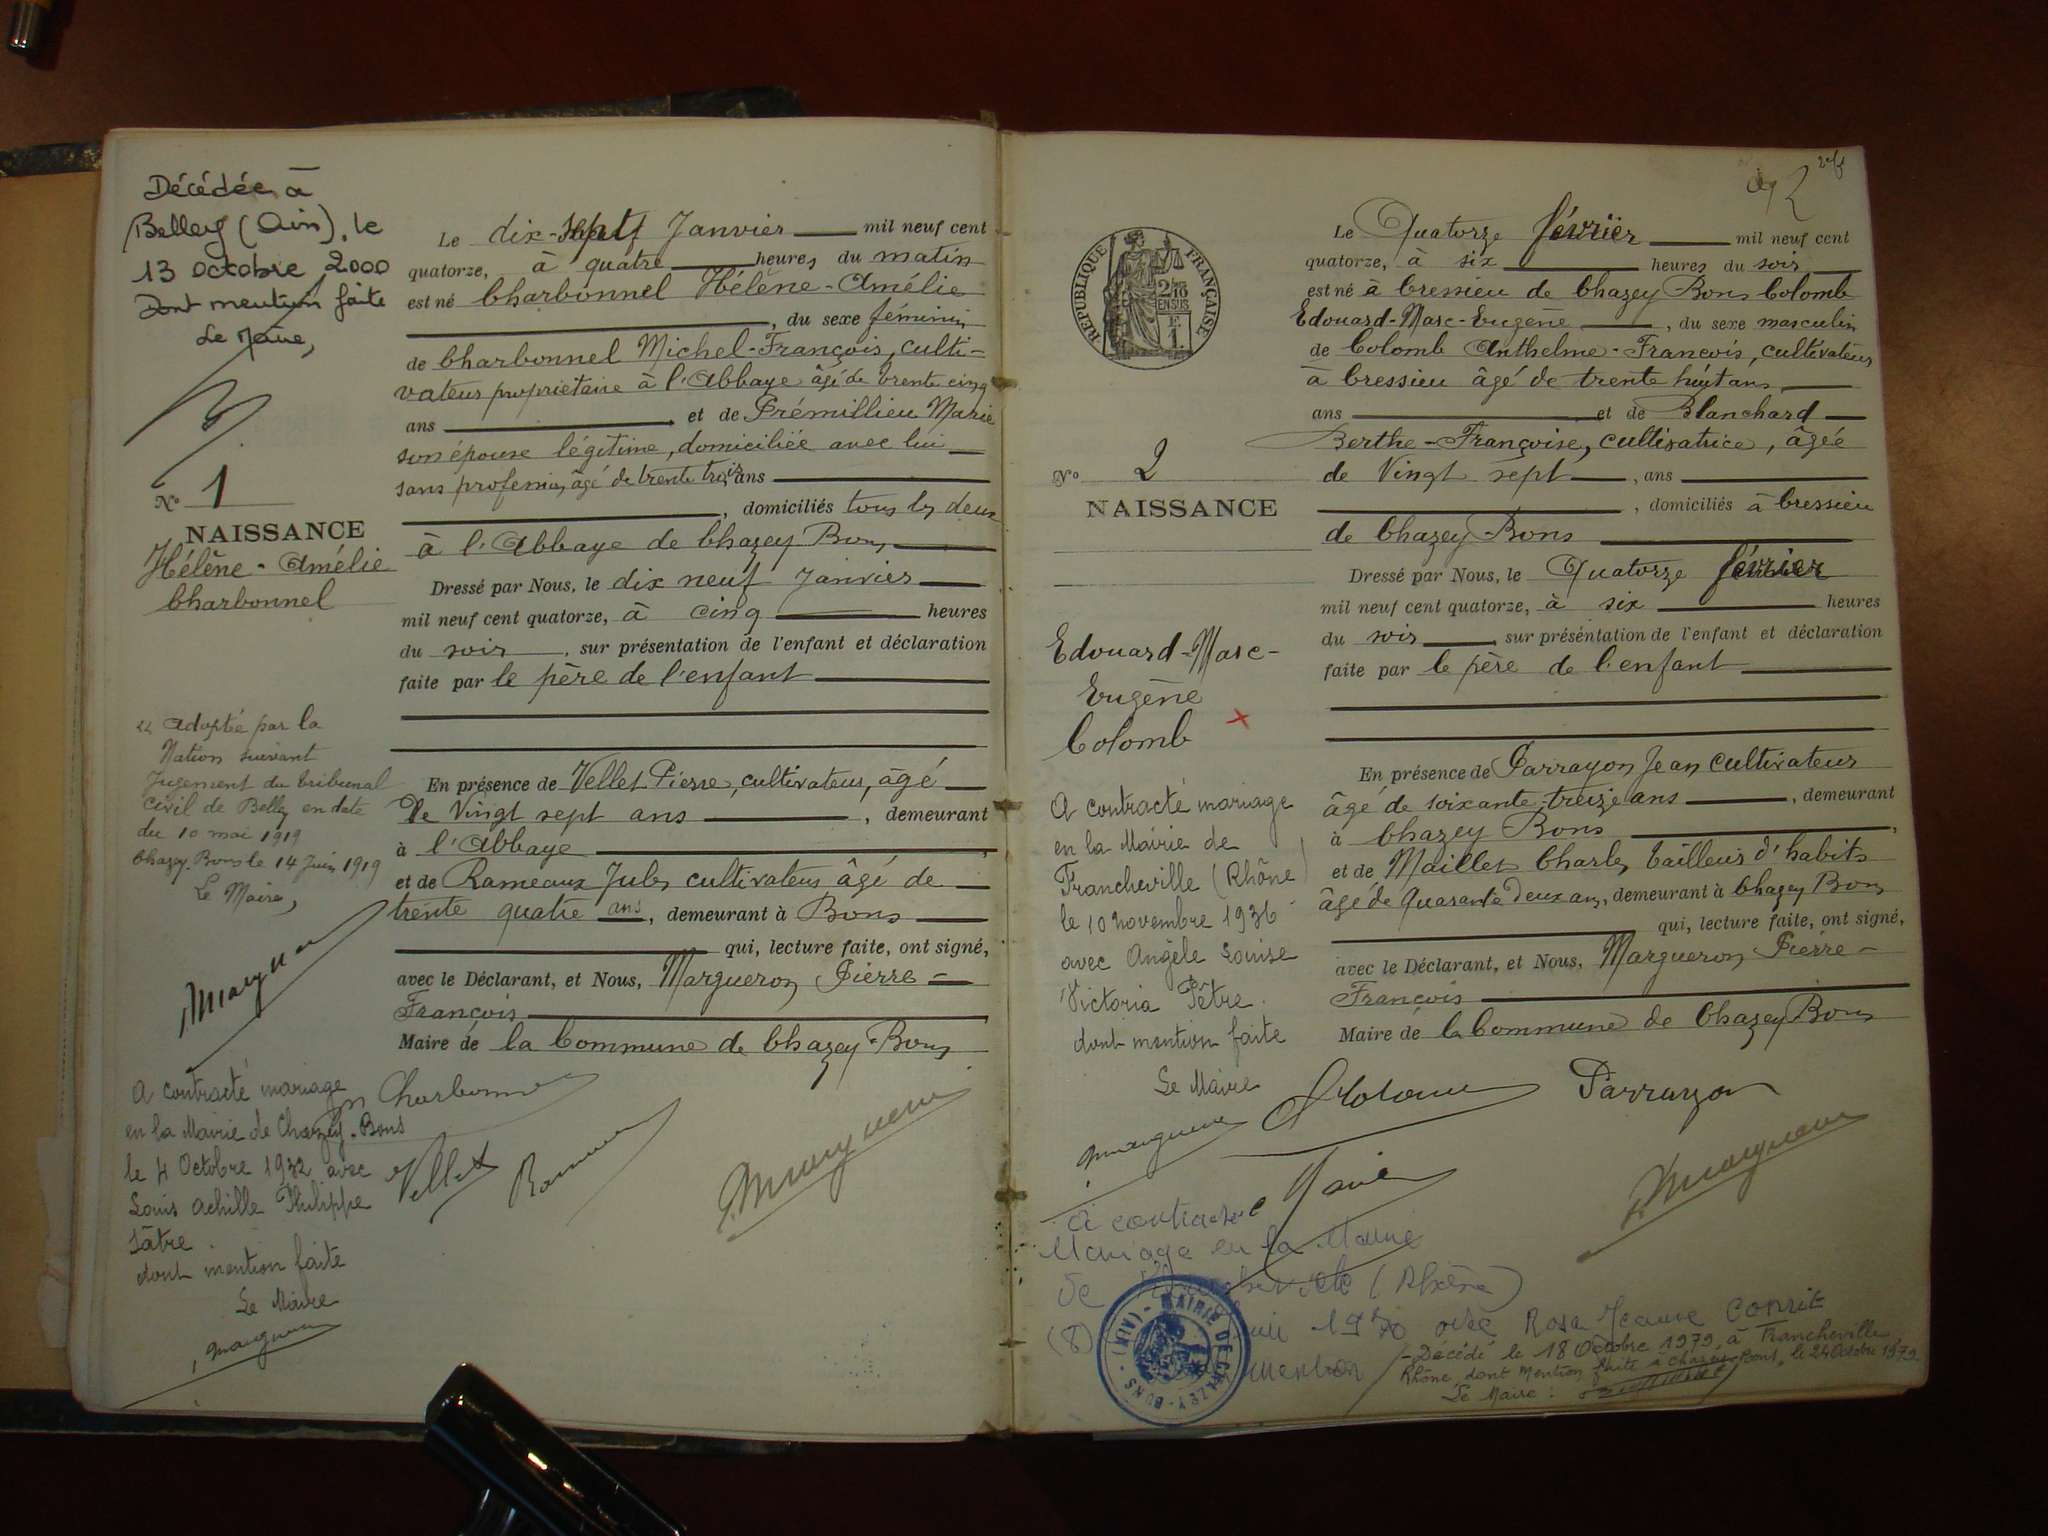 Décédée à
Belley (Ain), le
13 octobre 2000
Dont mention faite
Le Maire,
N° 1
NAISSANCE
Hélène-Amélie
Charbonnel
Adopté par la
Nation suivant
Jugement du tribunal
civil de Belley en date
du 10 mai 1919
Chazey-Bons le 14 Juin 1919
Le Maire,
A contracté mariage
en la Mairie de Chazey-Bons
le 4 Octobre 1932 avec
Louis Achille Philippe
Sâtre
dont mention faite
Le Maire
Le dix-sept Janvier mil neuf cent
quatorze, à quatre heures du matin
est né Charbonnel Hélène-Amélie
, du sexe féminin
de Charbonnel Michel-François, culti-
vateur propriétaire à l'Abbaye âgé de trente cinq
ans et de Prémillieu Marie
son épouse légitime, domiciliée avec lui
sans profession, âgé de trente trois ans
, domiciliés tous les deux
à l'Abbaye de Chazey-Bons
Dressé par Nous, le dix neuf Janvier
mil neuf cent quatorze, à cinq heures
du soir, sur présentation de l'enfant et déclaration
faite par le père de l'enfant
En présence de Vellet Pierre, cultivateur, âgé
de Vingt sept ans, demeurant
à l'Abbaye
et de Rameaux Jules cultivateur âgé de
trente quatre ans, demeurant à Bons
qui, lecture faite, ont signé,
avec le Déclarant, et Nous, Margueron Pierre-
François
Maire de la Commune de Chazey-Bons
Charbonnel
Vellet
2
RÉPUBLIQUE FRANÇAISE
2/10
EN SUS
N° 2
NAISSANCE
Edouard-Marc-
Eugène
Colomb
A contracté mariage
en la Mairie de
Francheville (Rhône)
le 10 novembre 1936
avec Angèle Louise
Victoria Pêtre
dont mention faite
Le Maire
Le Quatorze février mil neuf cent
quatorze, à six heures du soir
est né à Cressieu de Chazey-Bons Colomb
Edouard-Marc-Eugène, du sexe masculin
de Colomb Anthelme-François, cultivateur
à Cressieu âgé de trente huit ans
ans et de Blanchard
Berthe-Françoise, cultivatrice, âgée
de Vingt sept, ans
, domiciliés à Cressieu
de Chazey-Bons
Dressé par Nous, le Quatorze février
mil neuf cent quatorze, à six heures
du soir, sur présentation de l'enfant et déclaration
faite par le père de l'enfant
En présence de Parrayon Jean cultivateur
âgé de soixante treize ans, demeurant
à Chazey Bons
et de Maillet Charles tailleur d'habits
âgé de Quarante deux ans, demeurant à Chazey Bons
qui, lecture faite, ont signé,
avec le Déclarant, et Nous, Margueron Pierre-
François
Maire de la Commune de Chazey Bons
Parrayon
A contracté
Mariage en la Mairie
de (Rhône)
1970 avec Rosa Jeanne CONRIE
mention
MAIRIE DE CHAZEY-BONS (AIN)
- Décédé le 18 Octobre 1979, à Francheville
Rhône, dont Mention faite à Chazey-Bons, le 24 Octobre 1979
Le Maire :